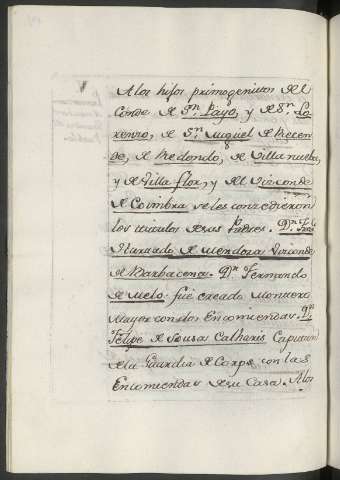 A los hijos primogenitos del
Conde de Sn. Payo, y de Sn. Lo
renzo, de Sn. Miguel de Rezen
de, de Redondo, de Villa nueba,
y de Villa flor, y del Vizconde
de Coimbra se les concedieron
los titulos de sus Padres. Dn.
Hurtado de Mendoza Vizconde
de Barbacena. Dn. Fernando
de Melo fué creado Montero
Mayor con dos Encomiendas. Dn.
Felipe de Sousa Calharis Capitan
de la Guardia de Corps con las
Encomiendas de su Casa. A los